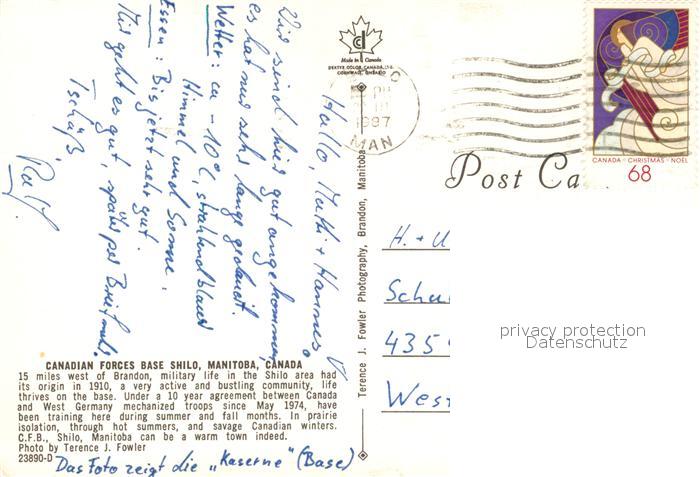 Hallo, Mutti + Hannes!
Wir sind hier gut angekommen,
es hat nur sehr lange gedauert.
Wetter: ca -10°C, strahlendblauer
Himmel und Sonne.
Essen: Bis jetzt sehr gut.
Mir geht es gut, später per Brief mehr.
Tschüß,
Ralf.
CANADIAN FORCES BASE SHILO, MANITOBA, CANADA
15 miles west of Brandon, military life in the Shilo area had
its origin in 1910, a very active and bustling community, life
thrives on the base. Under a 10 year agreement between Canada
and West Germany mechanized troops since May 1974, have
been training here during summer and fall months. In prairie
isolation, through hot summers, and savage Canadian winters.
C.F.B., Shilo, Manitoba can be a warm town indeed.
Photo by Terence J. Fowler
23890-D
Das Foto zeigt die „Kaserne“ (Base)
Made in Canada
DEXTER COLOR CANADA LTD.
CORNWALL, ONTARIO
Terence J. Fowler Photography, Brandon, Manitoba
1997
MAN
CANADA · CHRISTMAS · NOËL
68
Post Ca
H. + U
Schu
435
West
privacy protection
Datenschutz